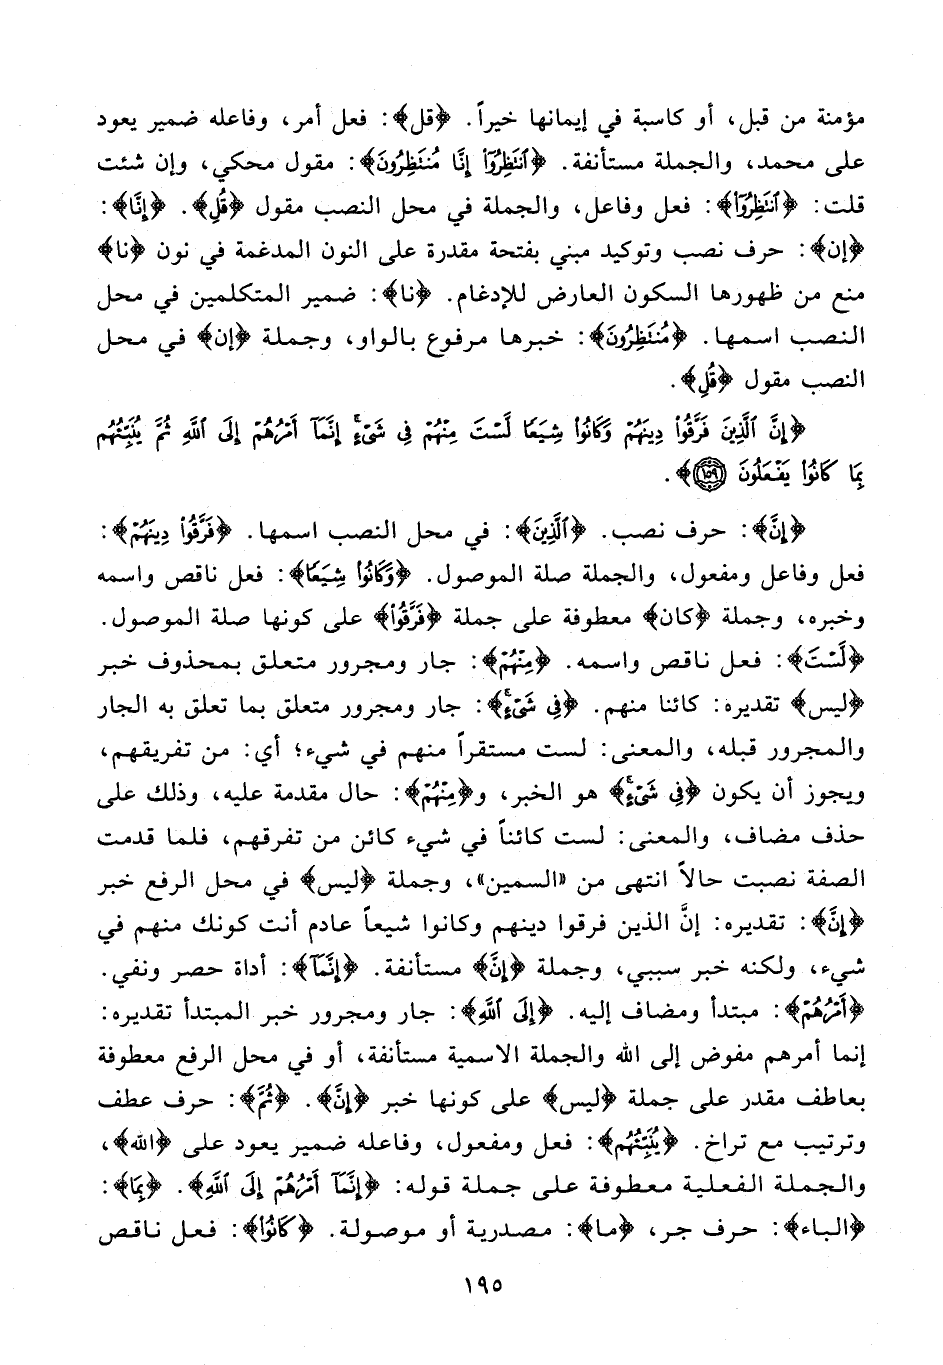 مؤمنة من قبل، أو كاسبة في إيمانها خيراً. ﴿قل﴾: فعل أمر، وفاعله ضمير يعود
على محمد، والجملة مستأنفة. ﴿ٱنتَظِرُوٓا۟ إِنَّا مُنتَظِرُونَ﴾: مقول محكي، وإن شئت
قلت: ﴿ٱنتَظِرُوٓا۟﴾: فعل وفاعل، والجملة في محل النصب مقول ﴿قُلِ﴾. ﴿إِنَّا﴾:
﴿إن﴾: حرف نصب وتوكيد مبني بفتحة مقدرة على النون المدغمة في نون ﴿نا﴾
منع من ظهورها السكون العارض للإدغام. ﴿نا﴾: ضمير المتكلمين في محل
النصب اسمها. ﴿مُنتَظِرُونَ﴾: خبرها مرفوع بالواو، وجملة ﴿إن﴾ في محل
النصب مقول ﴿قُلِ﴾.
﴿إِنَّ ٱلَّذِينَ فَرَّقُوا۟ دِينَهُمْ وَكَانُوا۟ شِيَعًا لَّسْتَ مِنْهُمْ فِى شَىْءٍ إِنَّمَآ أَمْرُهُمْ إِلَى ٱللَّهِ ثُمَّ يُنَبِّئُهُم
بِمَا كَانُوا۟ يَفْعَلُونَ ١٥٩﴾.
﴿إِنَّ﴾: حرف نصب. ﴿ٱلَّذِينَ﴾: في محل النصب اسمها. ﴿فَرَّقُوا۟ دِينَهُمْ﴾:
فعل وفاعل ومفعول، والجملة صلة الموصول. ﴿وَكَانُوا۟ شِيَعًا﴾: فعل ناقص واسمه
وخبره، وجملة ﴿كان﴾ معطوفة على جملة ﴿فَرَّقُوا۟﴾ على كونها صلة الموصول.
﴿لَّسْتَ﴾: فعل ناقص واسمه. ﴿مِنْهُمْ﴾: جار ومجرور متعلق بمحذوف خبر
﴿ليس﴾ تقديره: كائنا منهم. ﴿فِى شَىْءٍ﴾: جار ومجرور متعلق بما تعلق به الجار
والمجرور قبله، والمعنى: لست مستقراً منهم في شيء؛ أي: من تفريقهم،
ويجوز أن يكون ﴿فِى شَىْءٍ﴾ هو الخبر، و﴿مِنْهُمْ﴾: حال مقدمة عليه، وذلك على
حذف مضاف، والمعنى: لست كائناً في شيء كائن من تفرقهم، فلما قدمت
الصفة نصبت حالاً انتهى من «السمين»، وجملة ﴿ليس﴾ في محل الرفع خبر
﴿إِنَّ﴾: تقديره: إنَّ الذين فرقوا دينهم وكانوا شيعاً عادم أنت كونك منهم في
شيء، ولكنه خبر سببي، وجملة ﴿إِنَّ﴾ مستأنفة. ﴿إِنَّمَآ﴾: أداة حصر ونفي.
﴿أَمْرُهُمْ﴾: مبتدأ ومضاف إليه. ﴿إِلَى ٱللَّهِ﴾: جار ومجرور خبر المبتدأ تقديره:
إنما أمرهم مفوض إلى الله والجملة الاسمية مستأنفة، أو في محل الرفع معطوفة
بعاطف مقدر على جملة ﴿ليس﴾ على كونها خبر ﴿إِنَّ﴾. ﴿ثُمَّ﴾: حرف عطف
وترتيب مع تراخ. ﴿يُنَبِّئُهُم﴾: فعل ومفعول، وفاعله ضمير يعود على ﴿الله﴾،
والجملة الفعلية معطوفة على جملة قوله: ﴿إِنَّمَآ أَمْرُهُمْ إِلَى ٱللَّهِ﴾. ﴿بِمَا﴾:
﴿الباء﴾: حرف جر، ﴿ما﴾: مصدرية أو موصولة. ﴿كَانُوا۟﴾: فعل ناقص
١٩٥